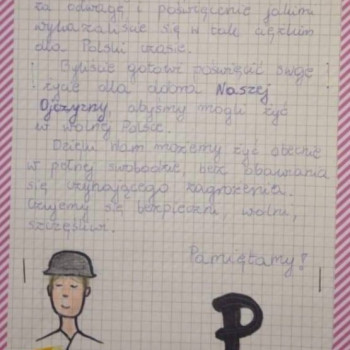 za odwagę i poświęcenie jakim
wykazaliście się w tak ciężkim
dla Polski czasie.
Byliście gotowi poświęcić swoje
życie dla dobra Naszej
Ojczyzny abyśmy mogli żyć
w wolnej Polsce.
Dzięki Wam możemy żyć obecnie
w pełnej swobodzie, bez obawiania
się czyhającego zagrożenia.
Czujemy się bezpieczni, wolni,
szczęśliwi.
Pamiętamy!
P